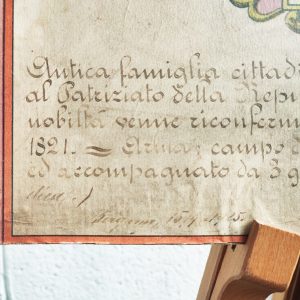 Antica famiglia cittadi
al Patriziato della Repu
nobiltà venne riconferm
1821. = Arma: campo d
ed accompagnato da 3 g